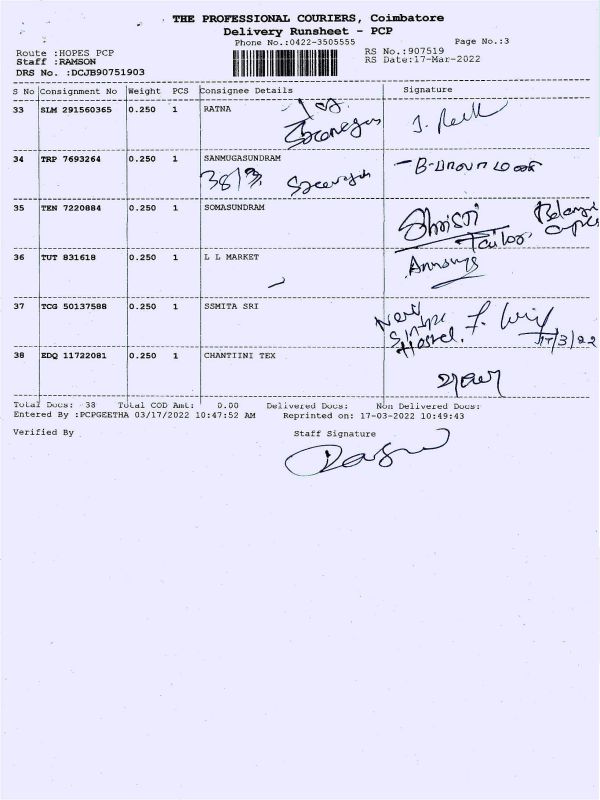 THE PROFESSIONAL COURIERS, Coimbatore
Delivery Runsheet - PCP
Phone No.:0422-3505555
Page No.:3
Route :HOPES PCP
RS No.:907519
Staff :RAMSON
RS Date:17-Mar-2022
DRS No. :DCJB90751903
S No Consignment No Weight PCS Consignee Details Signature
33 SLM 291560365 0.250 1 RATNA
34 TRP 7693264 0.250 1 SANMUGASUNDRAM
35 TEN 7220884 0.250 1 SOMASUNDRAM
Tailor
36 TUT 831618 0.250 1 L L MARKET
37 TCG 50137588 0.250 1 SSMITA SRI
New
Hostel.
17/3/22
38 EDQ 11722081 0.250 1 CHANTIINI TEX
Total Docs: 38 Total COD Amt: 0.00 Delivered Docs: Non Delivered Docs:
Entered By :PCPGEETHA 03/17/2022 10:47:52 AM Reprinted on: 17-03-2022 10:49:43
Verified By Staff Signature